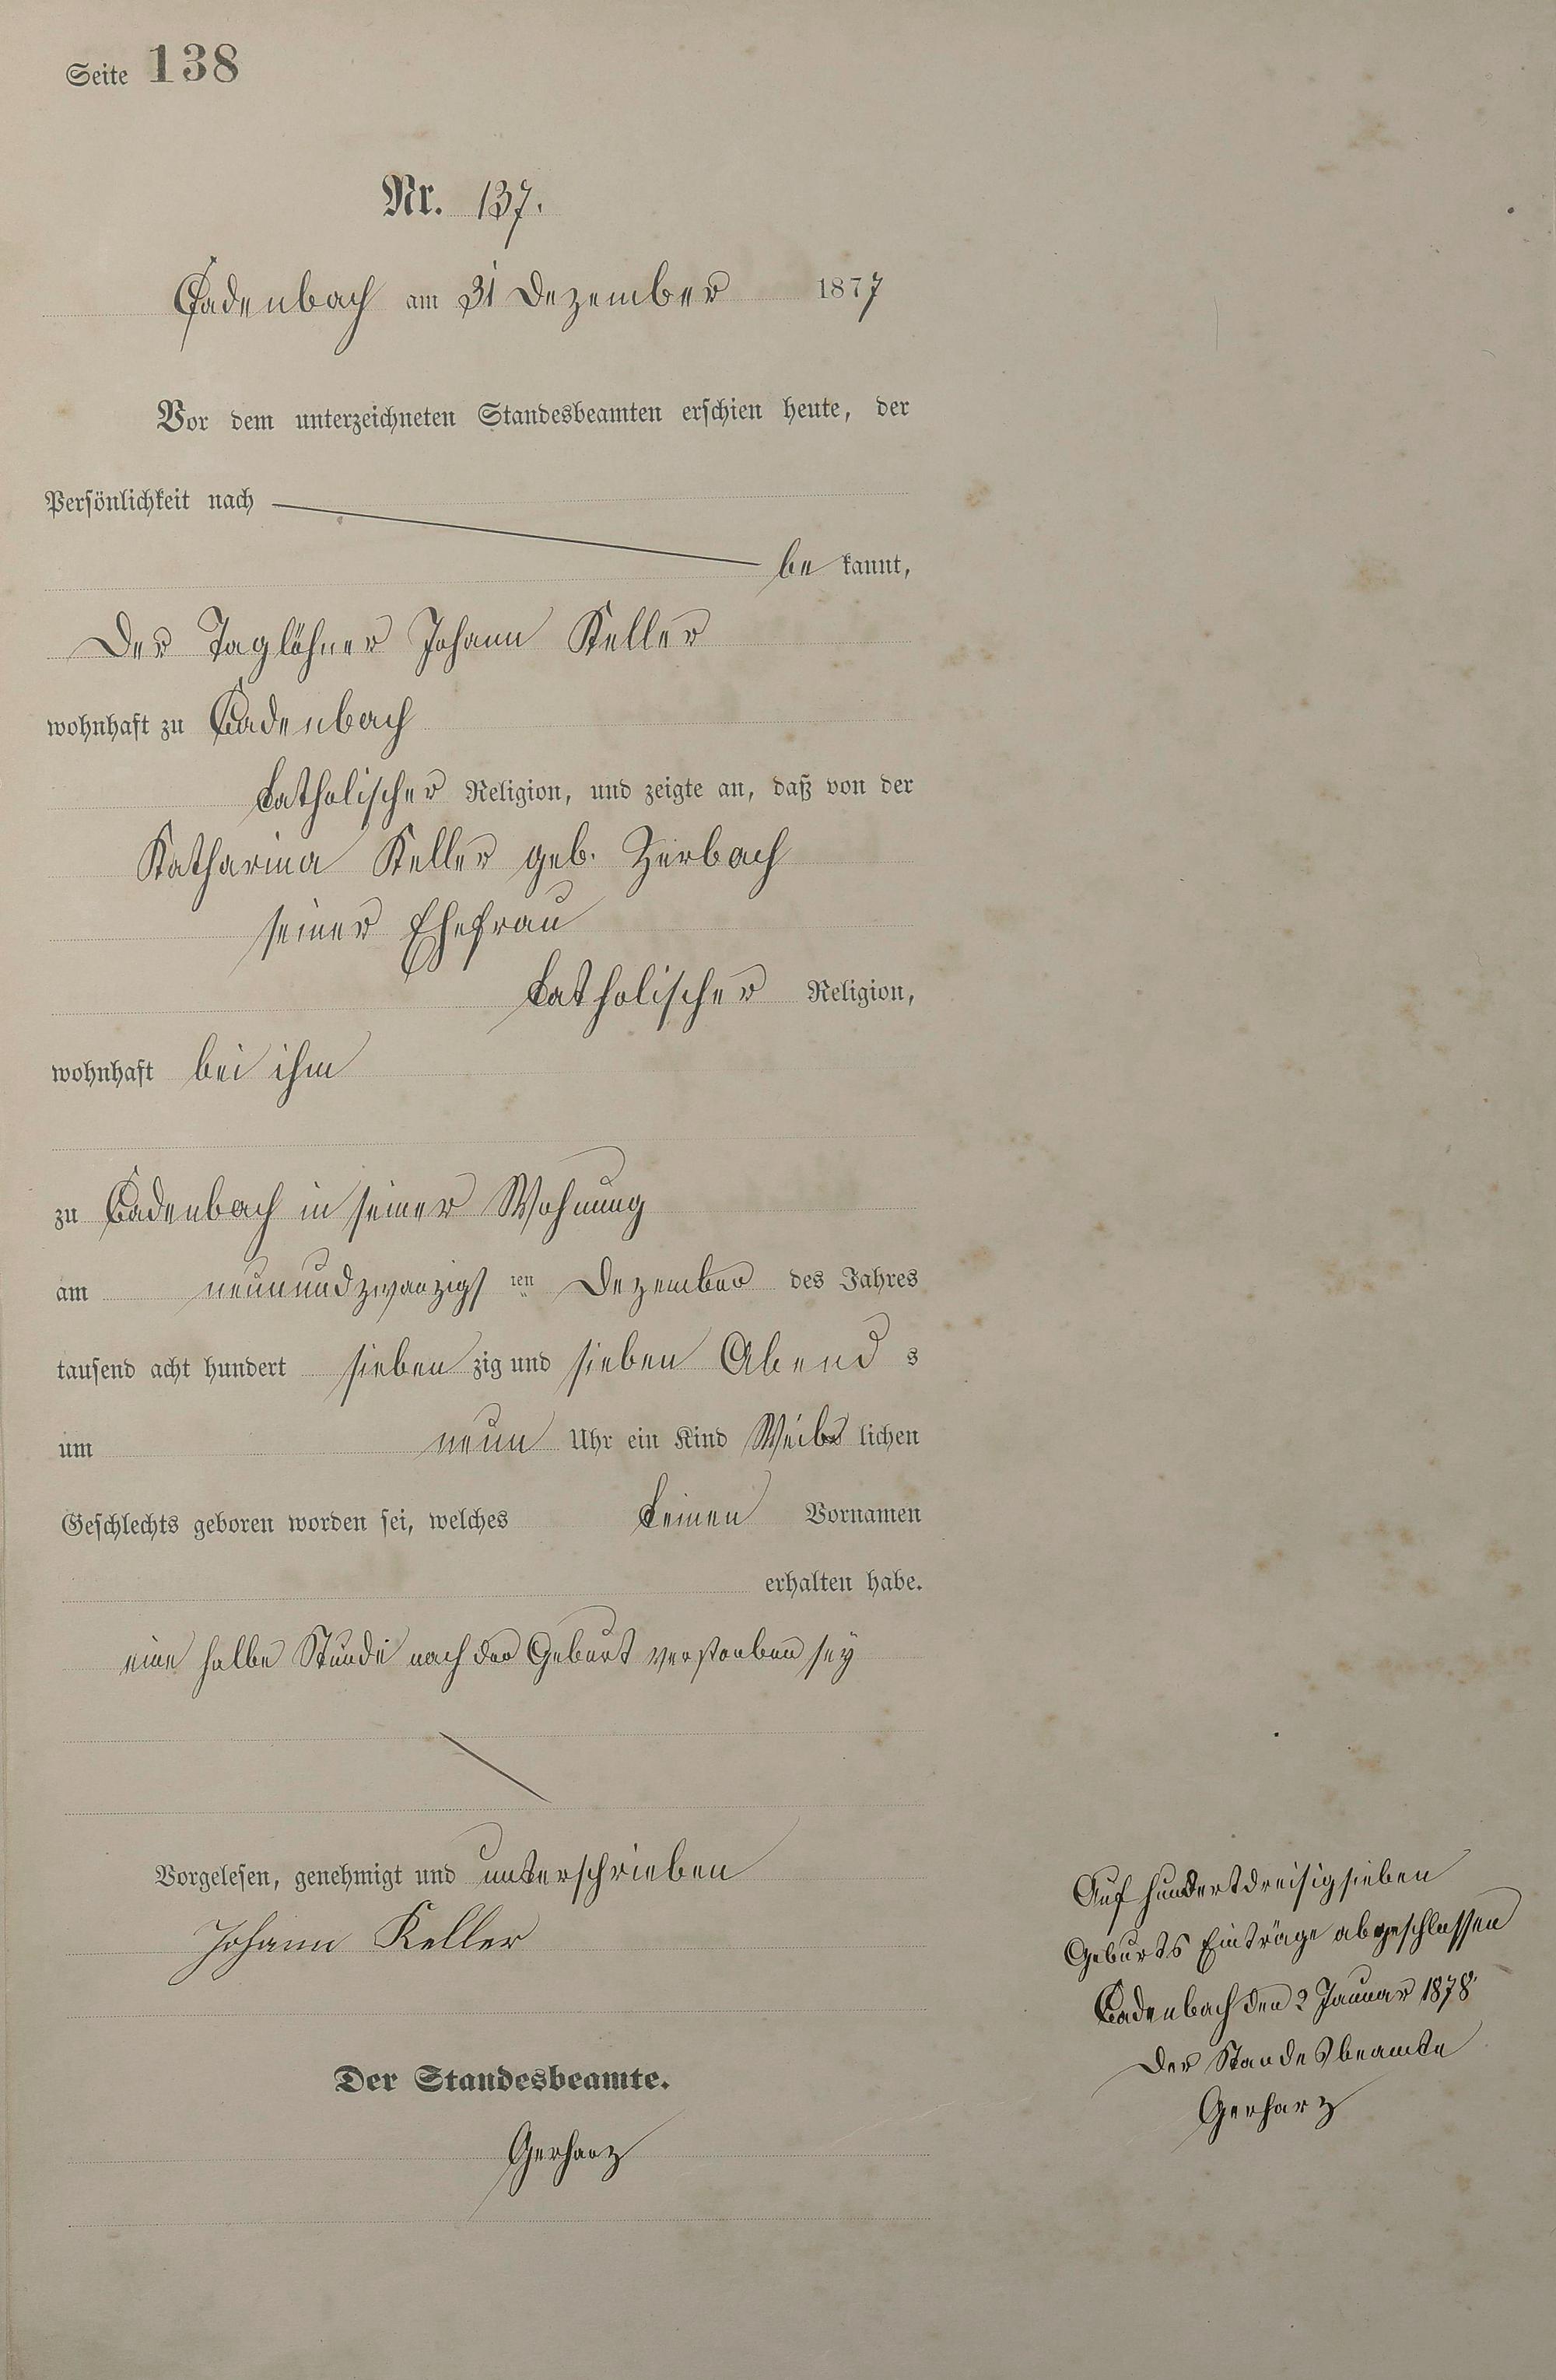 Seite 138
Nr. 137.
Cadenbach am 31 Dezember 1877
Vor dem unterzeichneten Standesbeamten erschien heute, der
Persönlichkeit nach
be kannt,
Der Taglöhner Johann Keller
wohnhaft zu Cadenbach
katholischer Religion, und zeigte an, daß von der
Katharina Keller geb. Zerbach
seiner Ehefrau
katholischer Religion,
wohnhaft bei ihm
zu Cadenbach in seiner Wohnung
am neunundzwanzigs ten Dezember des Jahres
tausend acht hundert sieben zig und sieben Abend s
um neun Uhr ein Kind Weib lichen
Geschlechts geboren worden sei, welches keinen Vornamen
erhalten habe.
eine halbe Stunde nach der Geburt verstorben sey
Vorgelesen, genehmigt und unterschrieben
Johann Keller
Der Standesbeamte.
Gerharz
Auf hundertdreisigsieben
Geburts Einträge abgeschlossen
Cadenbach den 2 Januar 1878
Der Standesbeamte
Gerharz